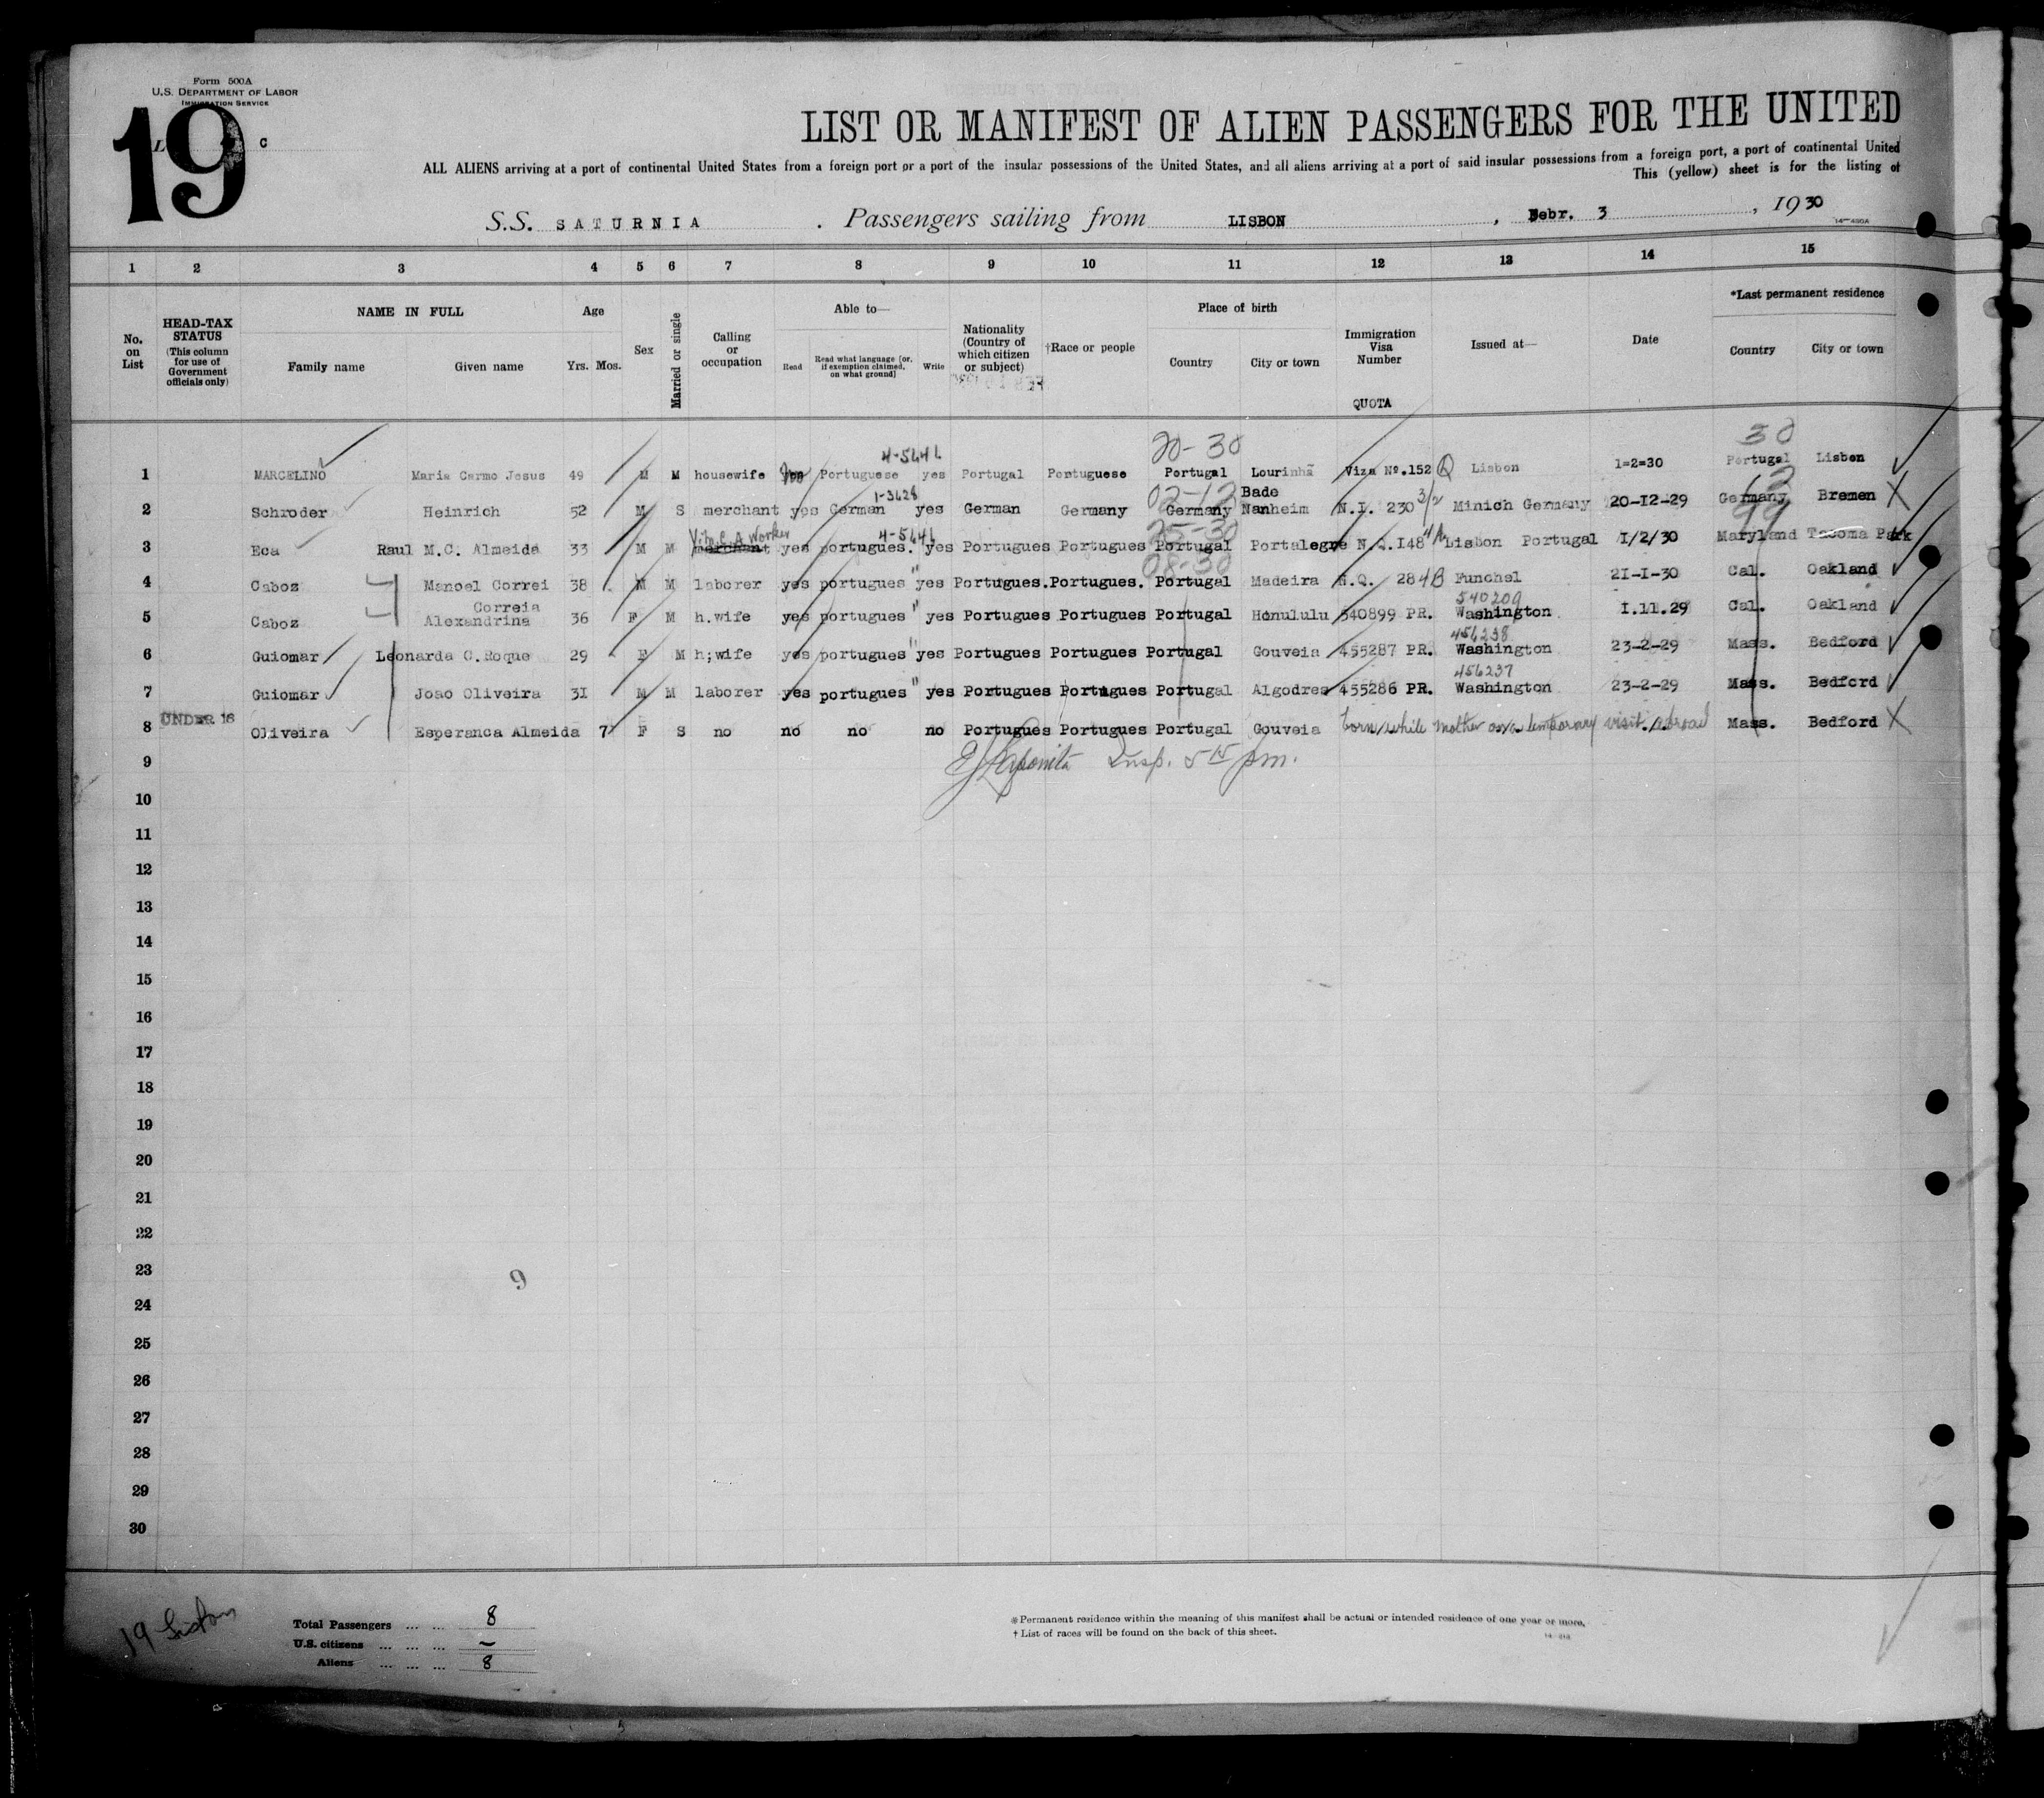 Form 500A
U.S. DEPARTMENT OF LABOR
IMMIGRATION SERVICE
19
C
LIST OR MANIFEST OF ALIEN PASSENGERS FOR THE UNITED
ALL ALIENS arriving at a port of continental United States from a foreign port or a port of the insular possessions of the United States, and all aliens arriving at a port of said insular possessions from a foreign port, a port of continental United
This (yellow) sheet is for the listing of
S.S. SATURNIA . Passengers sailing from LISBON , Febr. 3 , 1930
1 2 3 4 5 6 7 8 9 10 11 12 13 14 15
No. on List
HEAD-TAX STATUS (This column for use of Government officials only)
NAME IN FULL
Family name Given name
Age
Yrs. Mos.
Sex
Married or single
Calling or occupation
Able to—
Read Read what language [or, if exemption claimed, on what ground] Write
Nationality (Country of which citizen or subject)
†Race or people
Place of birth
Country City or town
Immigration Visa Number
QUOTA
Issued at—
Date
*Last permanent residence
Country City or town
4-5441 20-30 30
1 MARCELINO Maria Carmo Jesus 49 M M housewife yes Portuguese yes Portugal Portuguese Portugal Lourinhã Viza Nº.152 Q Lisbon 1=2=30 Portugal Lisbon
1-3428 02-12 Bade 12
2 Schroder Heinrich 52 M S merchant yes German yes German Germany Germany Nanheim N.I. 230 3/2 Minich Germany 20-I2-29 Germany Bremen
Y.M.C.A Worker 4-5441 25-30 99
3 Eca Raul M.C. Almeida 33 M M merchant yes portugues. yes Portugues Portugues Portugal Portalegre N.Q.I48 Lisbon Portugal I/2/30 Maryland Tacoma Park
08-30
4 Caboz Manoel Correi 38 M M laborer yes portugues " yes Portugues. Portugues. Portugal Madeira N.Q. 284B Funchal 2I-I-30 Cal. Oakland
Correia 540209
5 Caboz Alexandrina 36 F M h.wife yes portugues " yes Portugues Portugues Portugal Honululu 540899 PR. Washington I.11.29 Cal. Oakland
456238
6 Guiomar Leonarda C.Roque 29 F M h;wife yes portugues " yes Portugues Portugues Portugal Gouveia 455287 PR. Washington 23-2-29 Mass. Bedford
456237
7 Guiomar Joao Oliveira 3I M M laborer yes portugues " yes Portugues Portugues Portugal Algodres 455286 PR. Washington 23-2-29 Mass. Bedford
UNDER 16
8 Oliveira Esperanca Almeida 7 F S no no no no Portugues Portugues Portugal Gouveia born while mother on a temporary visit abroad Mass. Bedford
9 Insp. 5 15 pm.
10
11
12
13
14
15
16
17
18
19
20
21
22
23
9
24
25
26
27
28
29
30
19 Lisbon
Total Passengers ... ... 8
U.S. citizens ... ... ... –
Aliens ... ... ... 8
* Permanent residence within the meaning of this manifest shall be actual or intended residence of one year or more.
† List of races will be found on the back of this sheet.